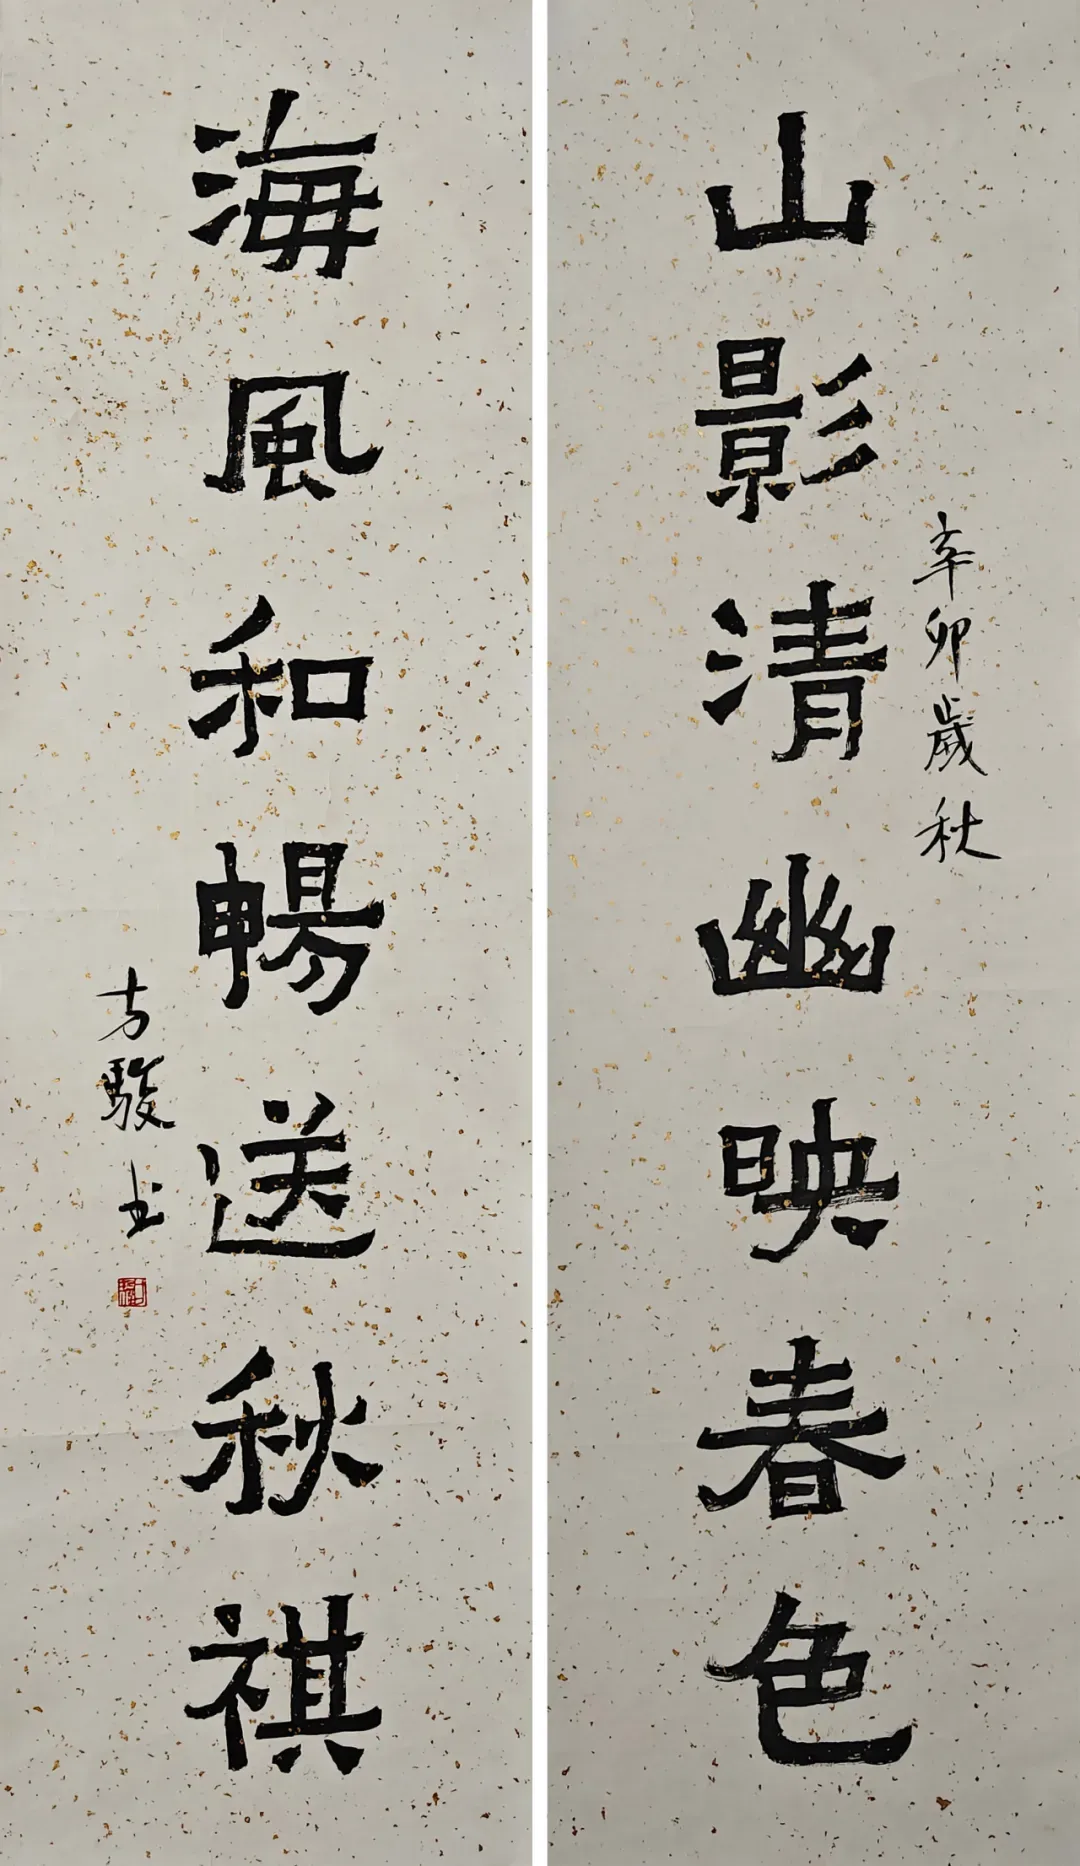 山影清幽映春色
辛卯歲秋
海風和暢送秋祺
方駿书